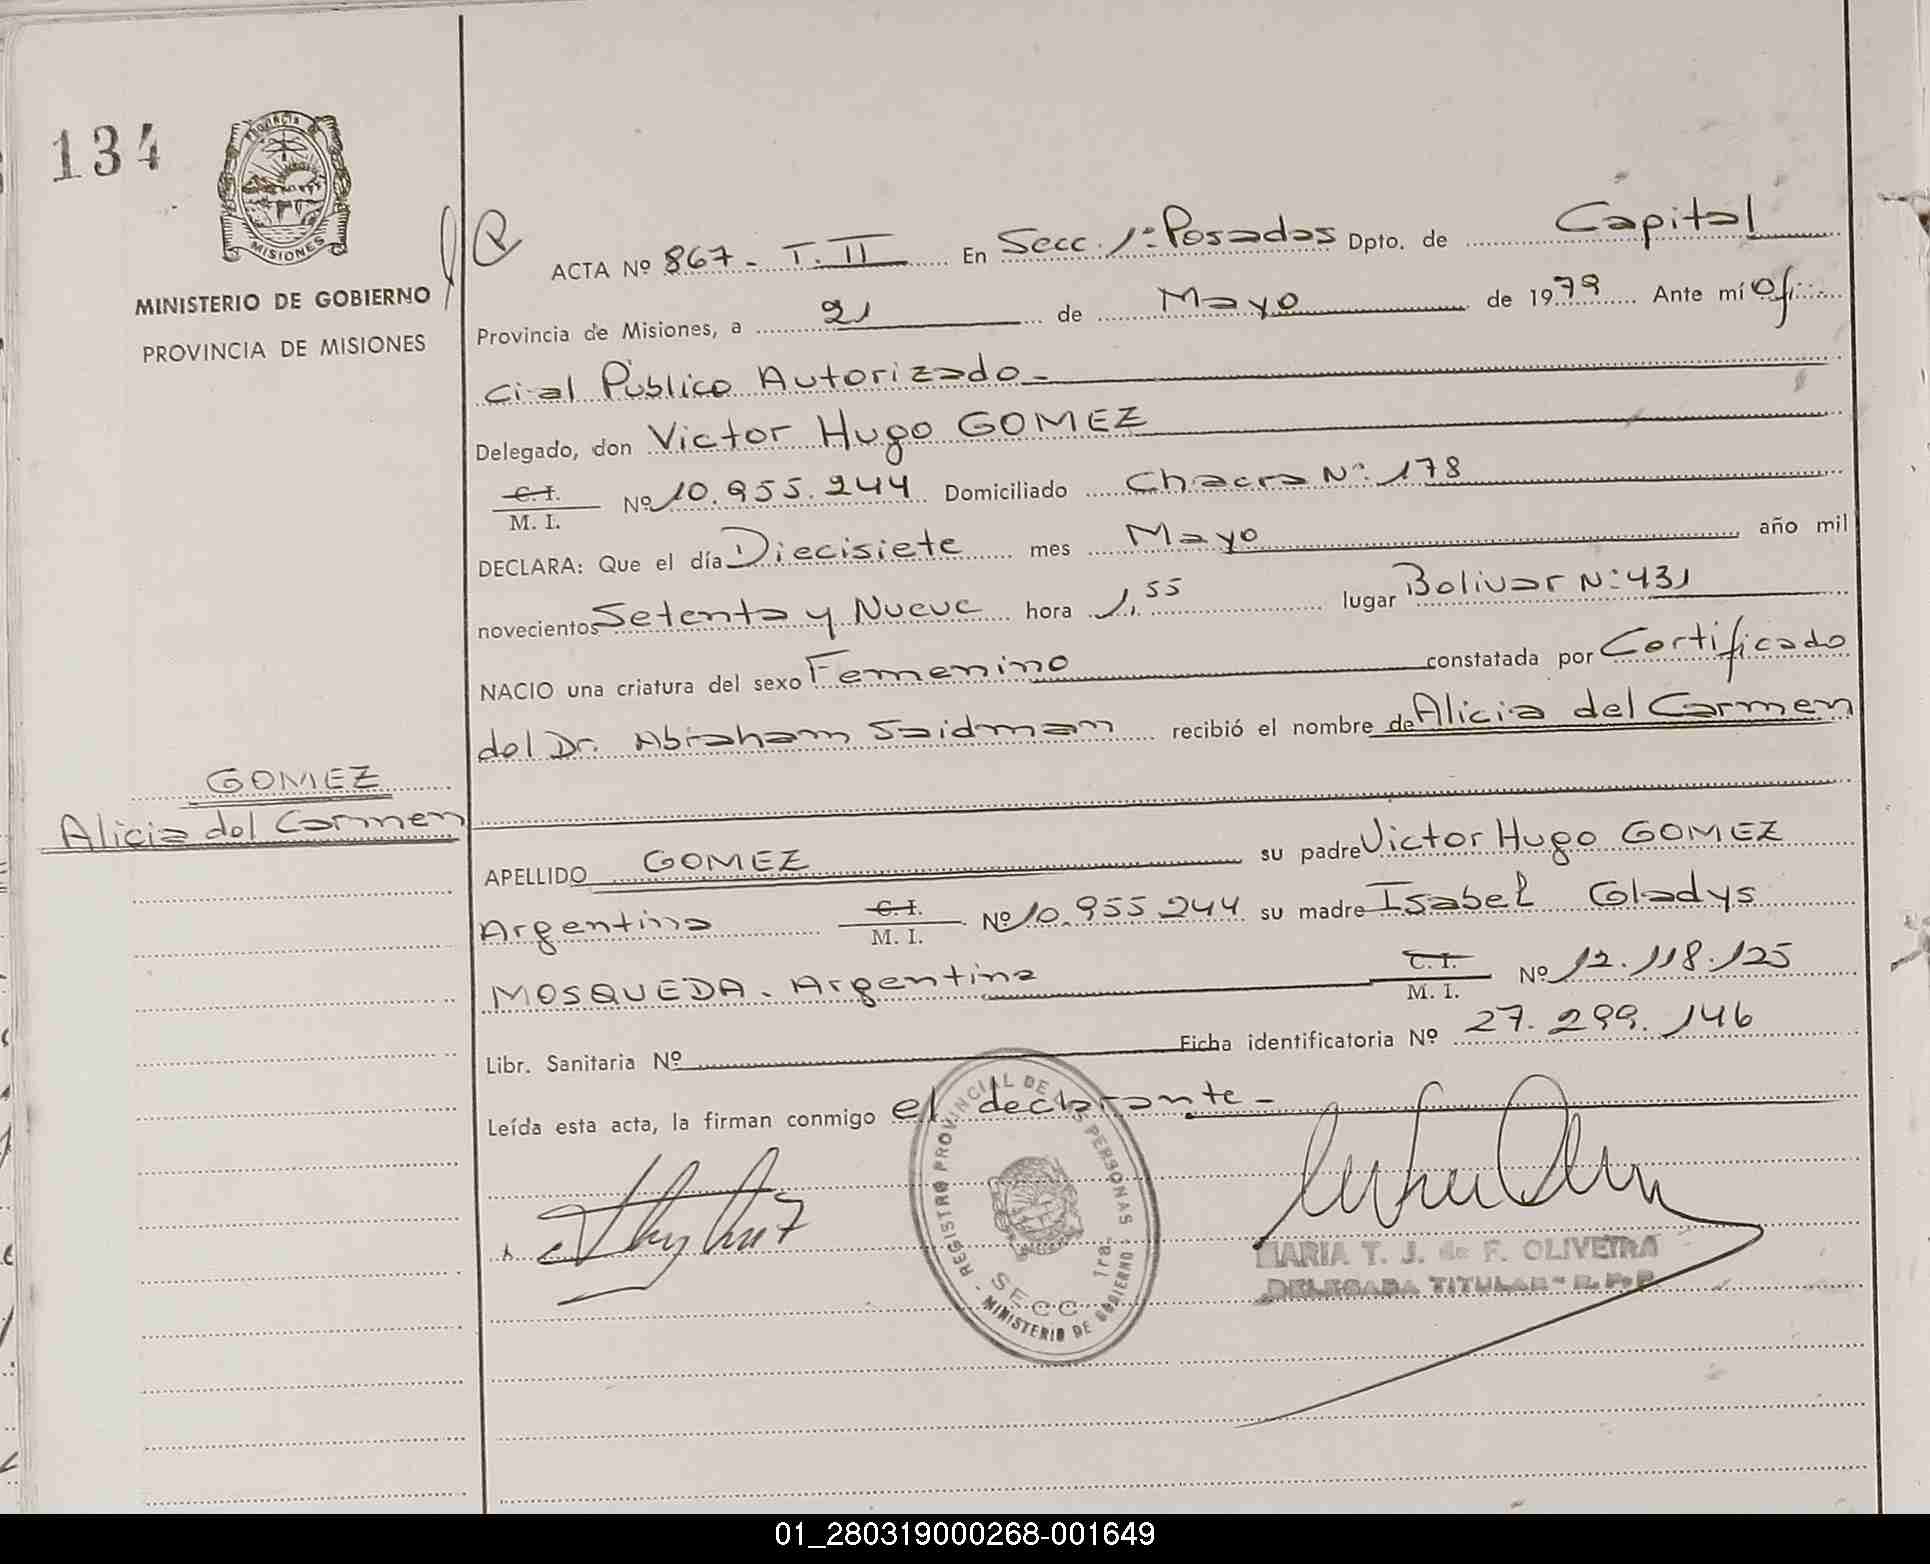 134
PROVINCIA DE
MISIONES
MINISTERIO DE GOBIERNO
PROVINCIA DE MISIONES
ACTA Nº 867 - T. II En Secc. 1ª Posadas Dpto. de Capital
Provincia de Misiones, a 21 de Mayo de 1979 Ante mí Ofi
cial Publico Autorizado -
Delegado, don Victor Hugo GOMEZ
C. I.
M. I. Nº 10.955.244 Domiciliado Chacra Nº 178
DECLARA: Que el día Diecisiete mes Mayo año mil
novecientos Setenta y Nueve hora 1,55 lugar Bolivar Nº 431
NACIO una criatura del sexo Femenino constatada por Certificado
del Dr. Abraham Saidman recibió el nombre de Alicia del Carmen
GOMEZ
Alicia del Carmen
APELLIDO GOMEZ su padre Victor Hugo GOMEZ
Argentina C. I.
M. I. Nº 10.955.244 su madre Isabel Gladys
MOSQUEDA. Argentina C. I.
M. I. Nº 12.118.125
Libr. Sanitaria Nº Ficha identificatoria Nº 27.299.146
Leída esta acta, la firman conmigo el declarante -
REGISTRO PROVINCIAL DE LAS PERSONAS
SECC. 1ra.
MINISTERIO DE GOBIERNO
MARIA T. J. de F. OLIVEIRA
DELEGADA TITULAR - R. P. P.
01_280319000268-001649